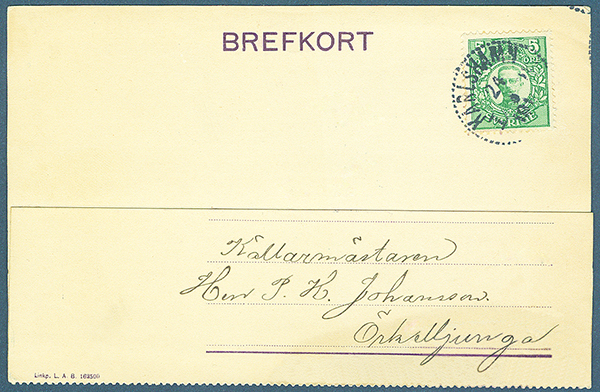 BREFKORT
5
KARLSHAMN
24
Källarmästaren
Herr P. K. Johansson.
Örkelljunga
Linkp. L. A. B. 162500